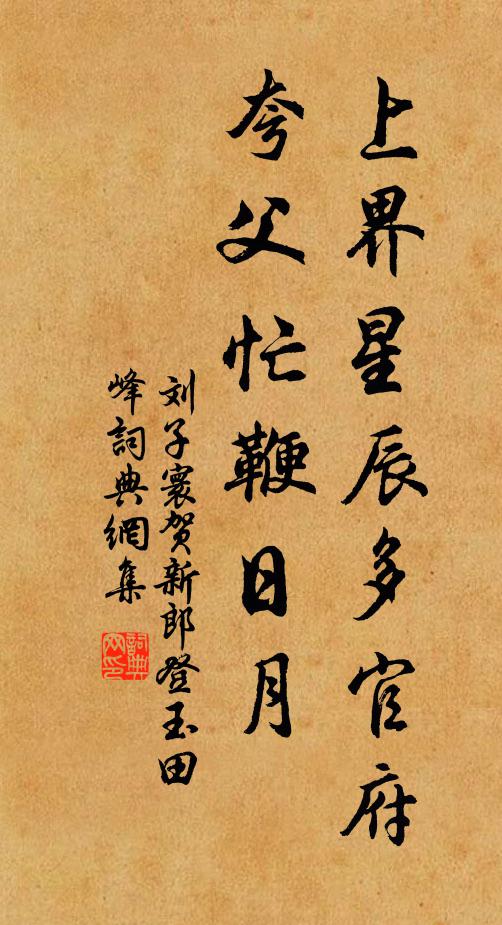 上界星辰多官府
夸父忙鞭日月
刘子寰贺新郎登玉田
峰詞典網集
詞典网印